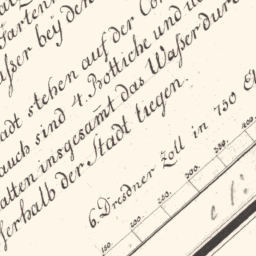 Garten
asser beÿ den
adt stehen auf der Con
auch sind 4. Bottiche und
alten insgesam̃t das Wasser durc
serhalb der Stadt liegen.
6. Dresdner Zoll in 750 El
150. 200. 250. 300. 350. 400.